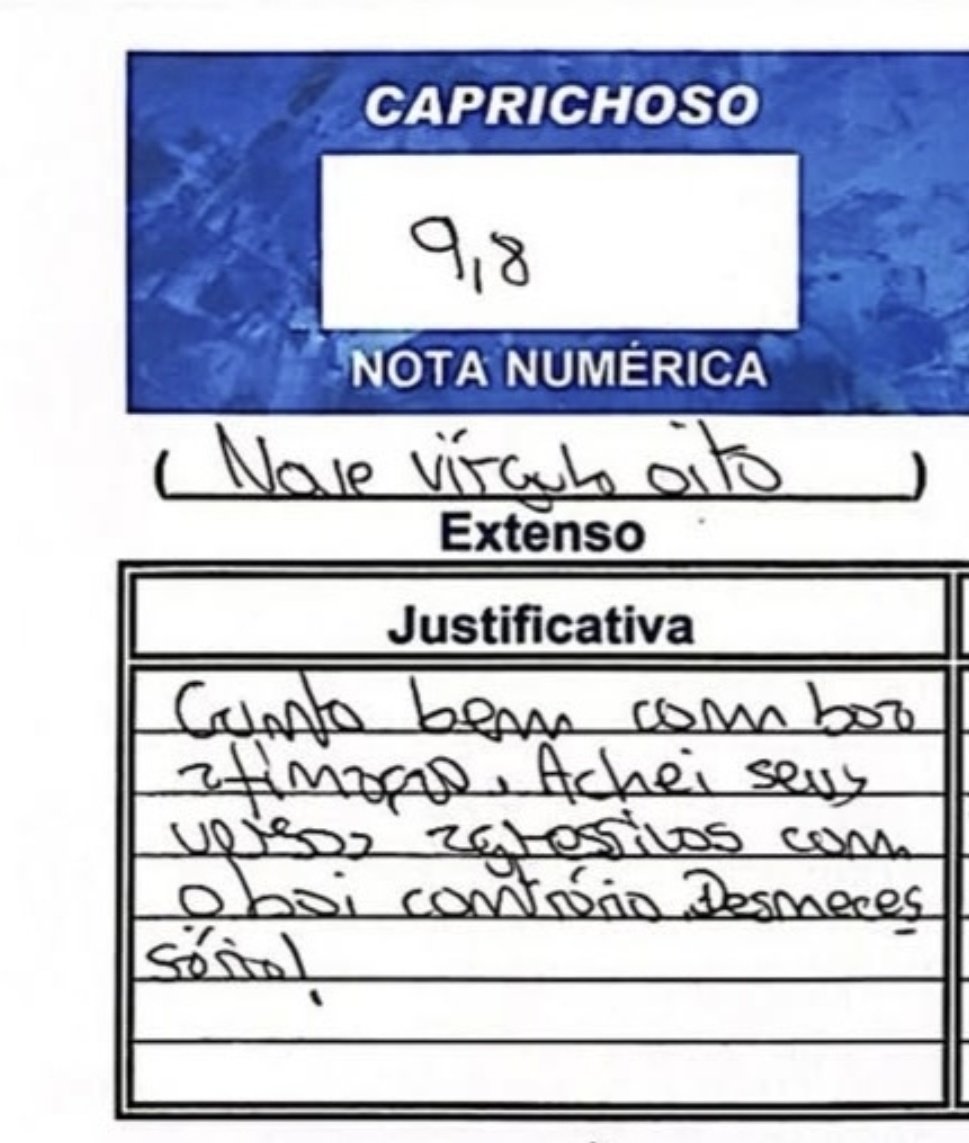 CAPRICHOSO
9,8
NOTA NUMÉRICA
( Nove vírgula oito )
Extenso
Justificativa
Canta bem com boa
afinação. Achei seus
versos agressivos com
o boi contrário. Desneces
sário!